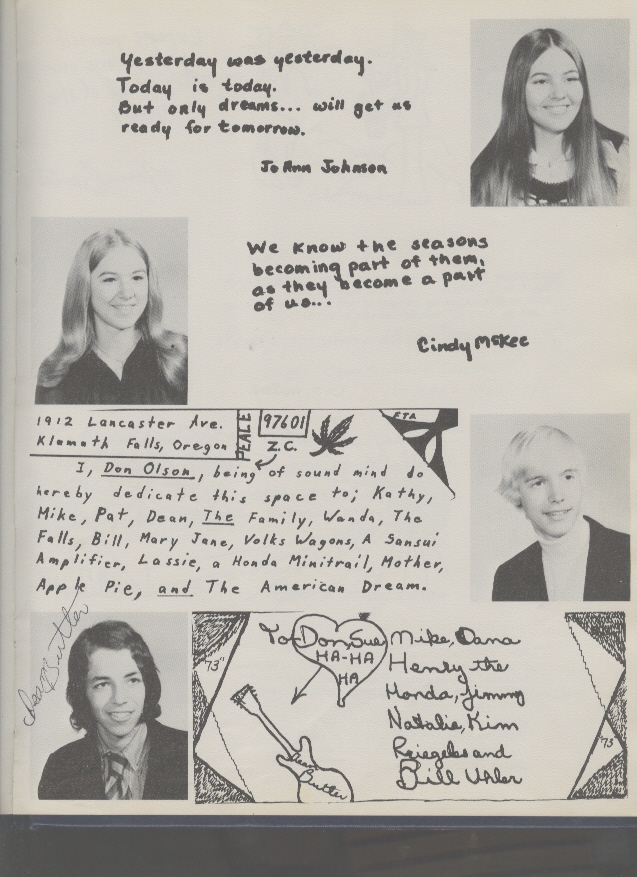 Yesterday was yesterday.
Today is today.
But only dreams... will get us
ready for tomorrow.
Jo Ann Johnson
We know the seasons
becoming part of them,
as they become a part
of us...
Cindy McKee
1912 Lancaster Ave.
Klamath Falls, Oregon
PEACE
97601
Z.C.
ETA
I, Don Olson, being of sound mind do
hereby dedicate this space to; Kathy,
Mike, Pat, Dean, The Family, Wanda, The
Falls, Bill, Mary Jane, Volks Wagons, A Sansui
Amplifier, Lassie, a Honda Minitrail, Mother,
Apple Pie, and The American Dream.
Dean Butler
73"
To Don, Sue, Mike, Dana
HA-HA
HA
Henry the
Honda, Jimmy
Natalie, Kim
Kriegeles and
Bill Uhler
Dean
Butler
'73